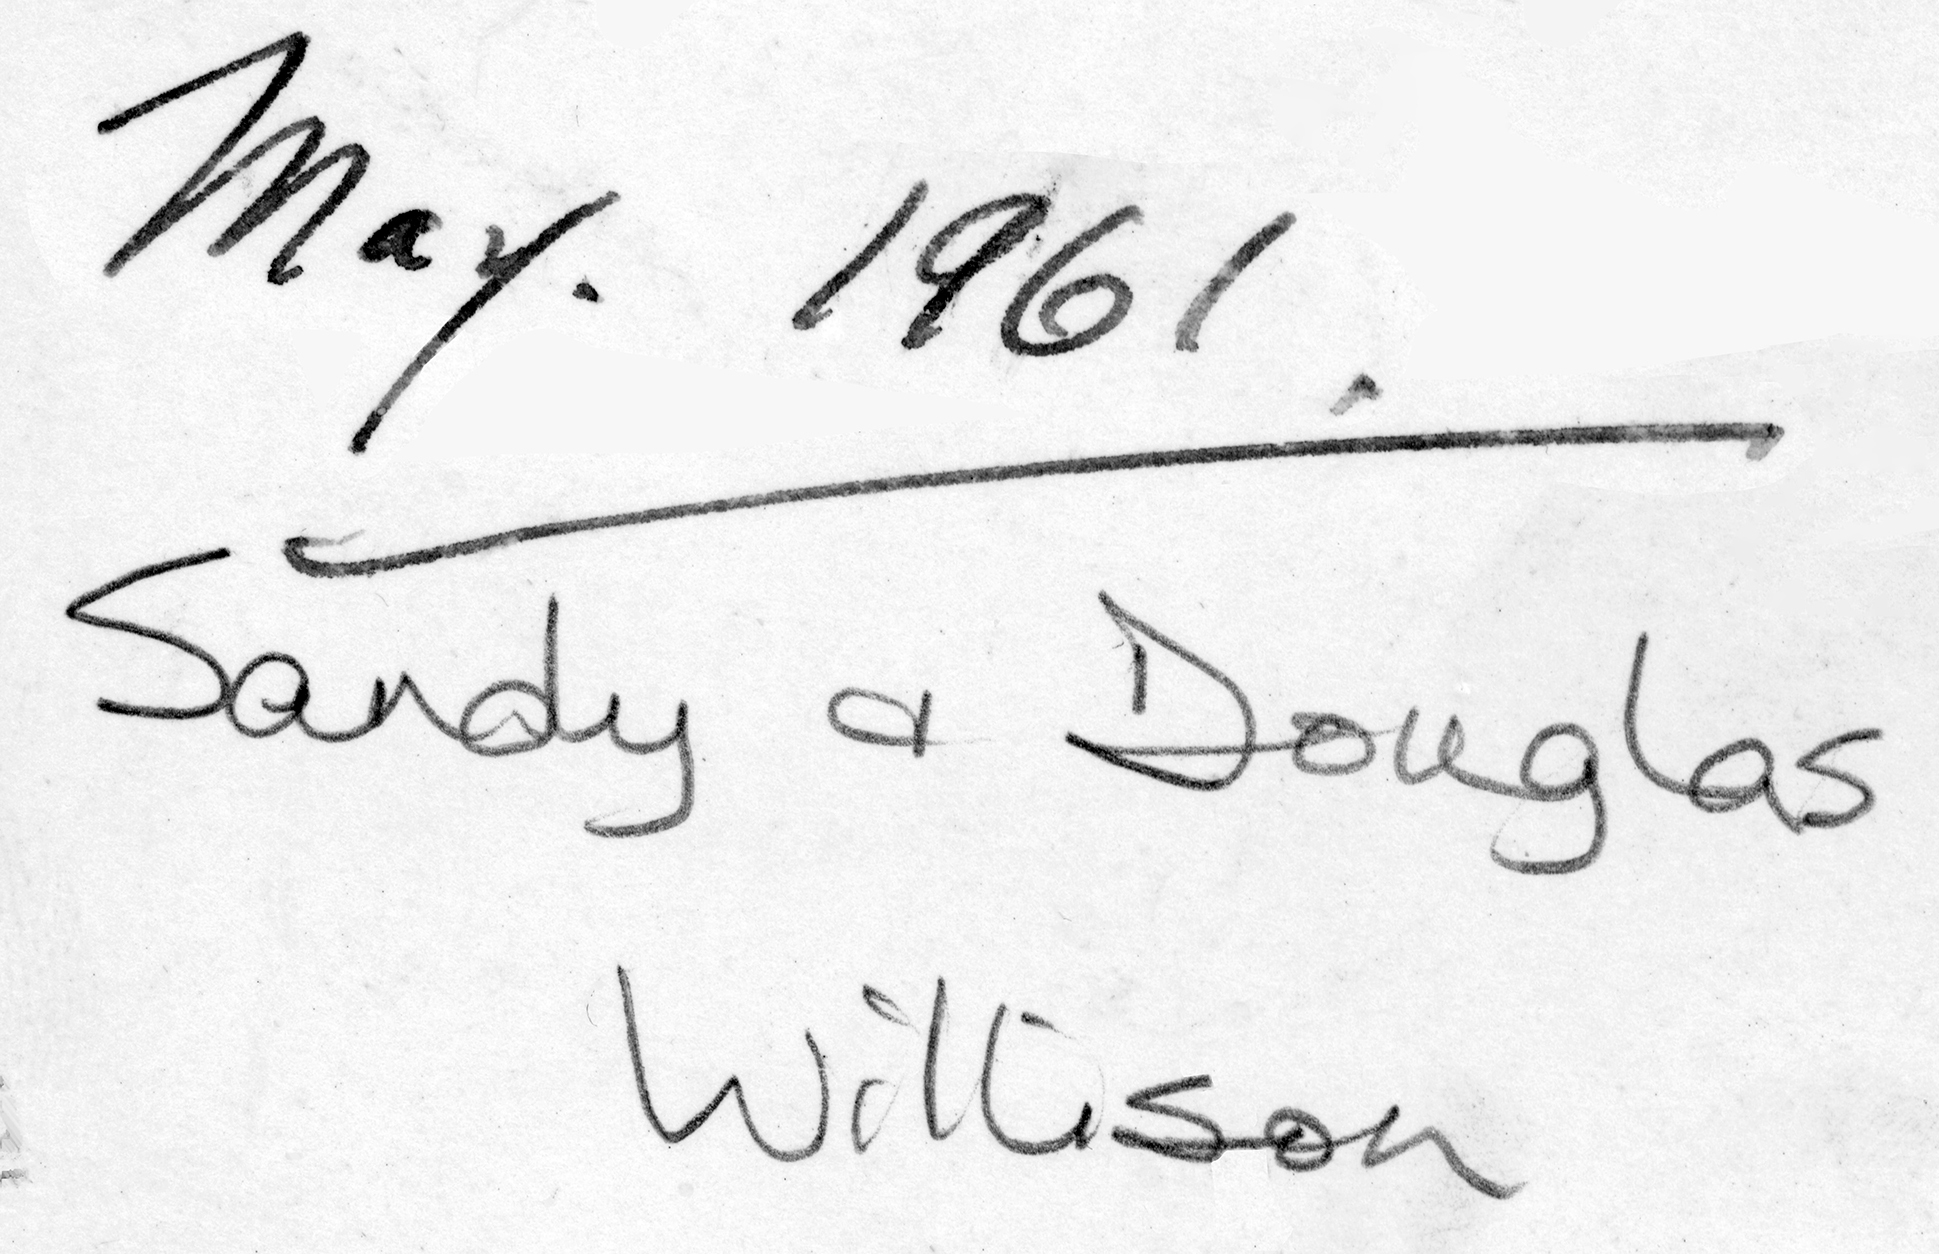 May. 1961.
Sandy & Douglas
Willison